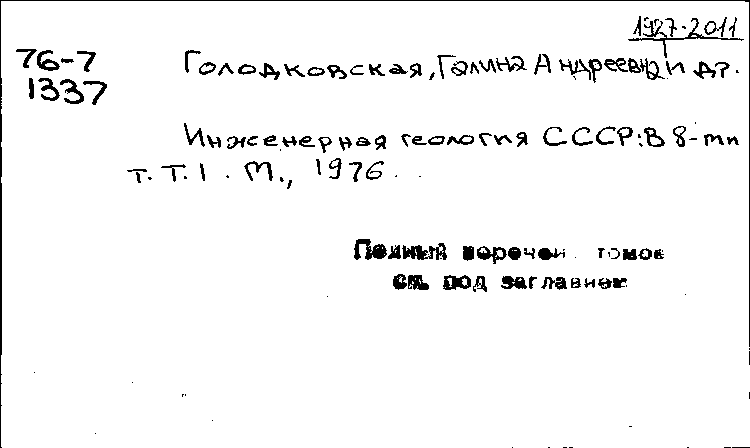 1927-2011
76-7 Голодковская, Галина Андреевна и др.
1337
Инженерная геология СССР: В 8-ми
т. Т.1. М., 1976.
Полный перечен томов
см. под заглавием